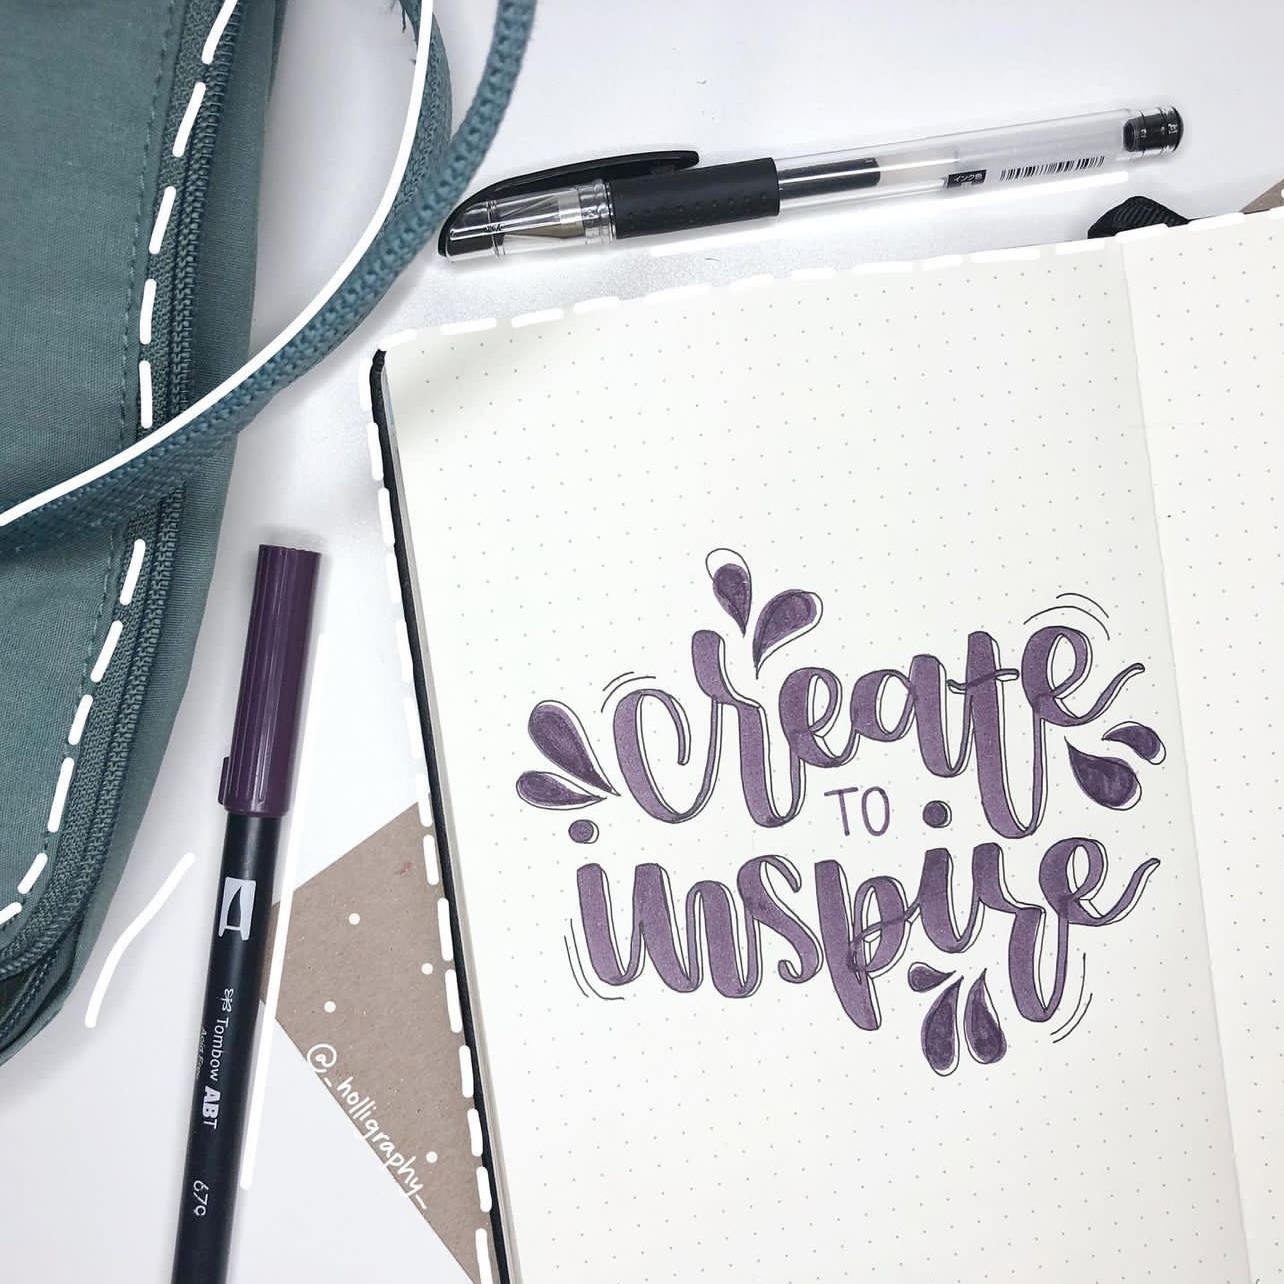 インク色
create
TO
inspire
Tombow ABT
679
@_holligraphy_